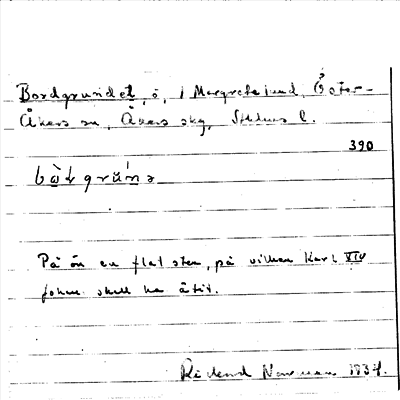 Bordgrundet, ö, i Margretelund, Öster-
Åkers sn, Åkers skg, Sthlms l.
390
bòḷgrǘnə
På ön en flat sten, på vilken Karl XIV
Johan skall ha ätit.
Rickard Norrman 1934.